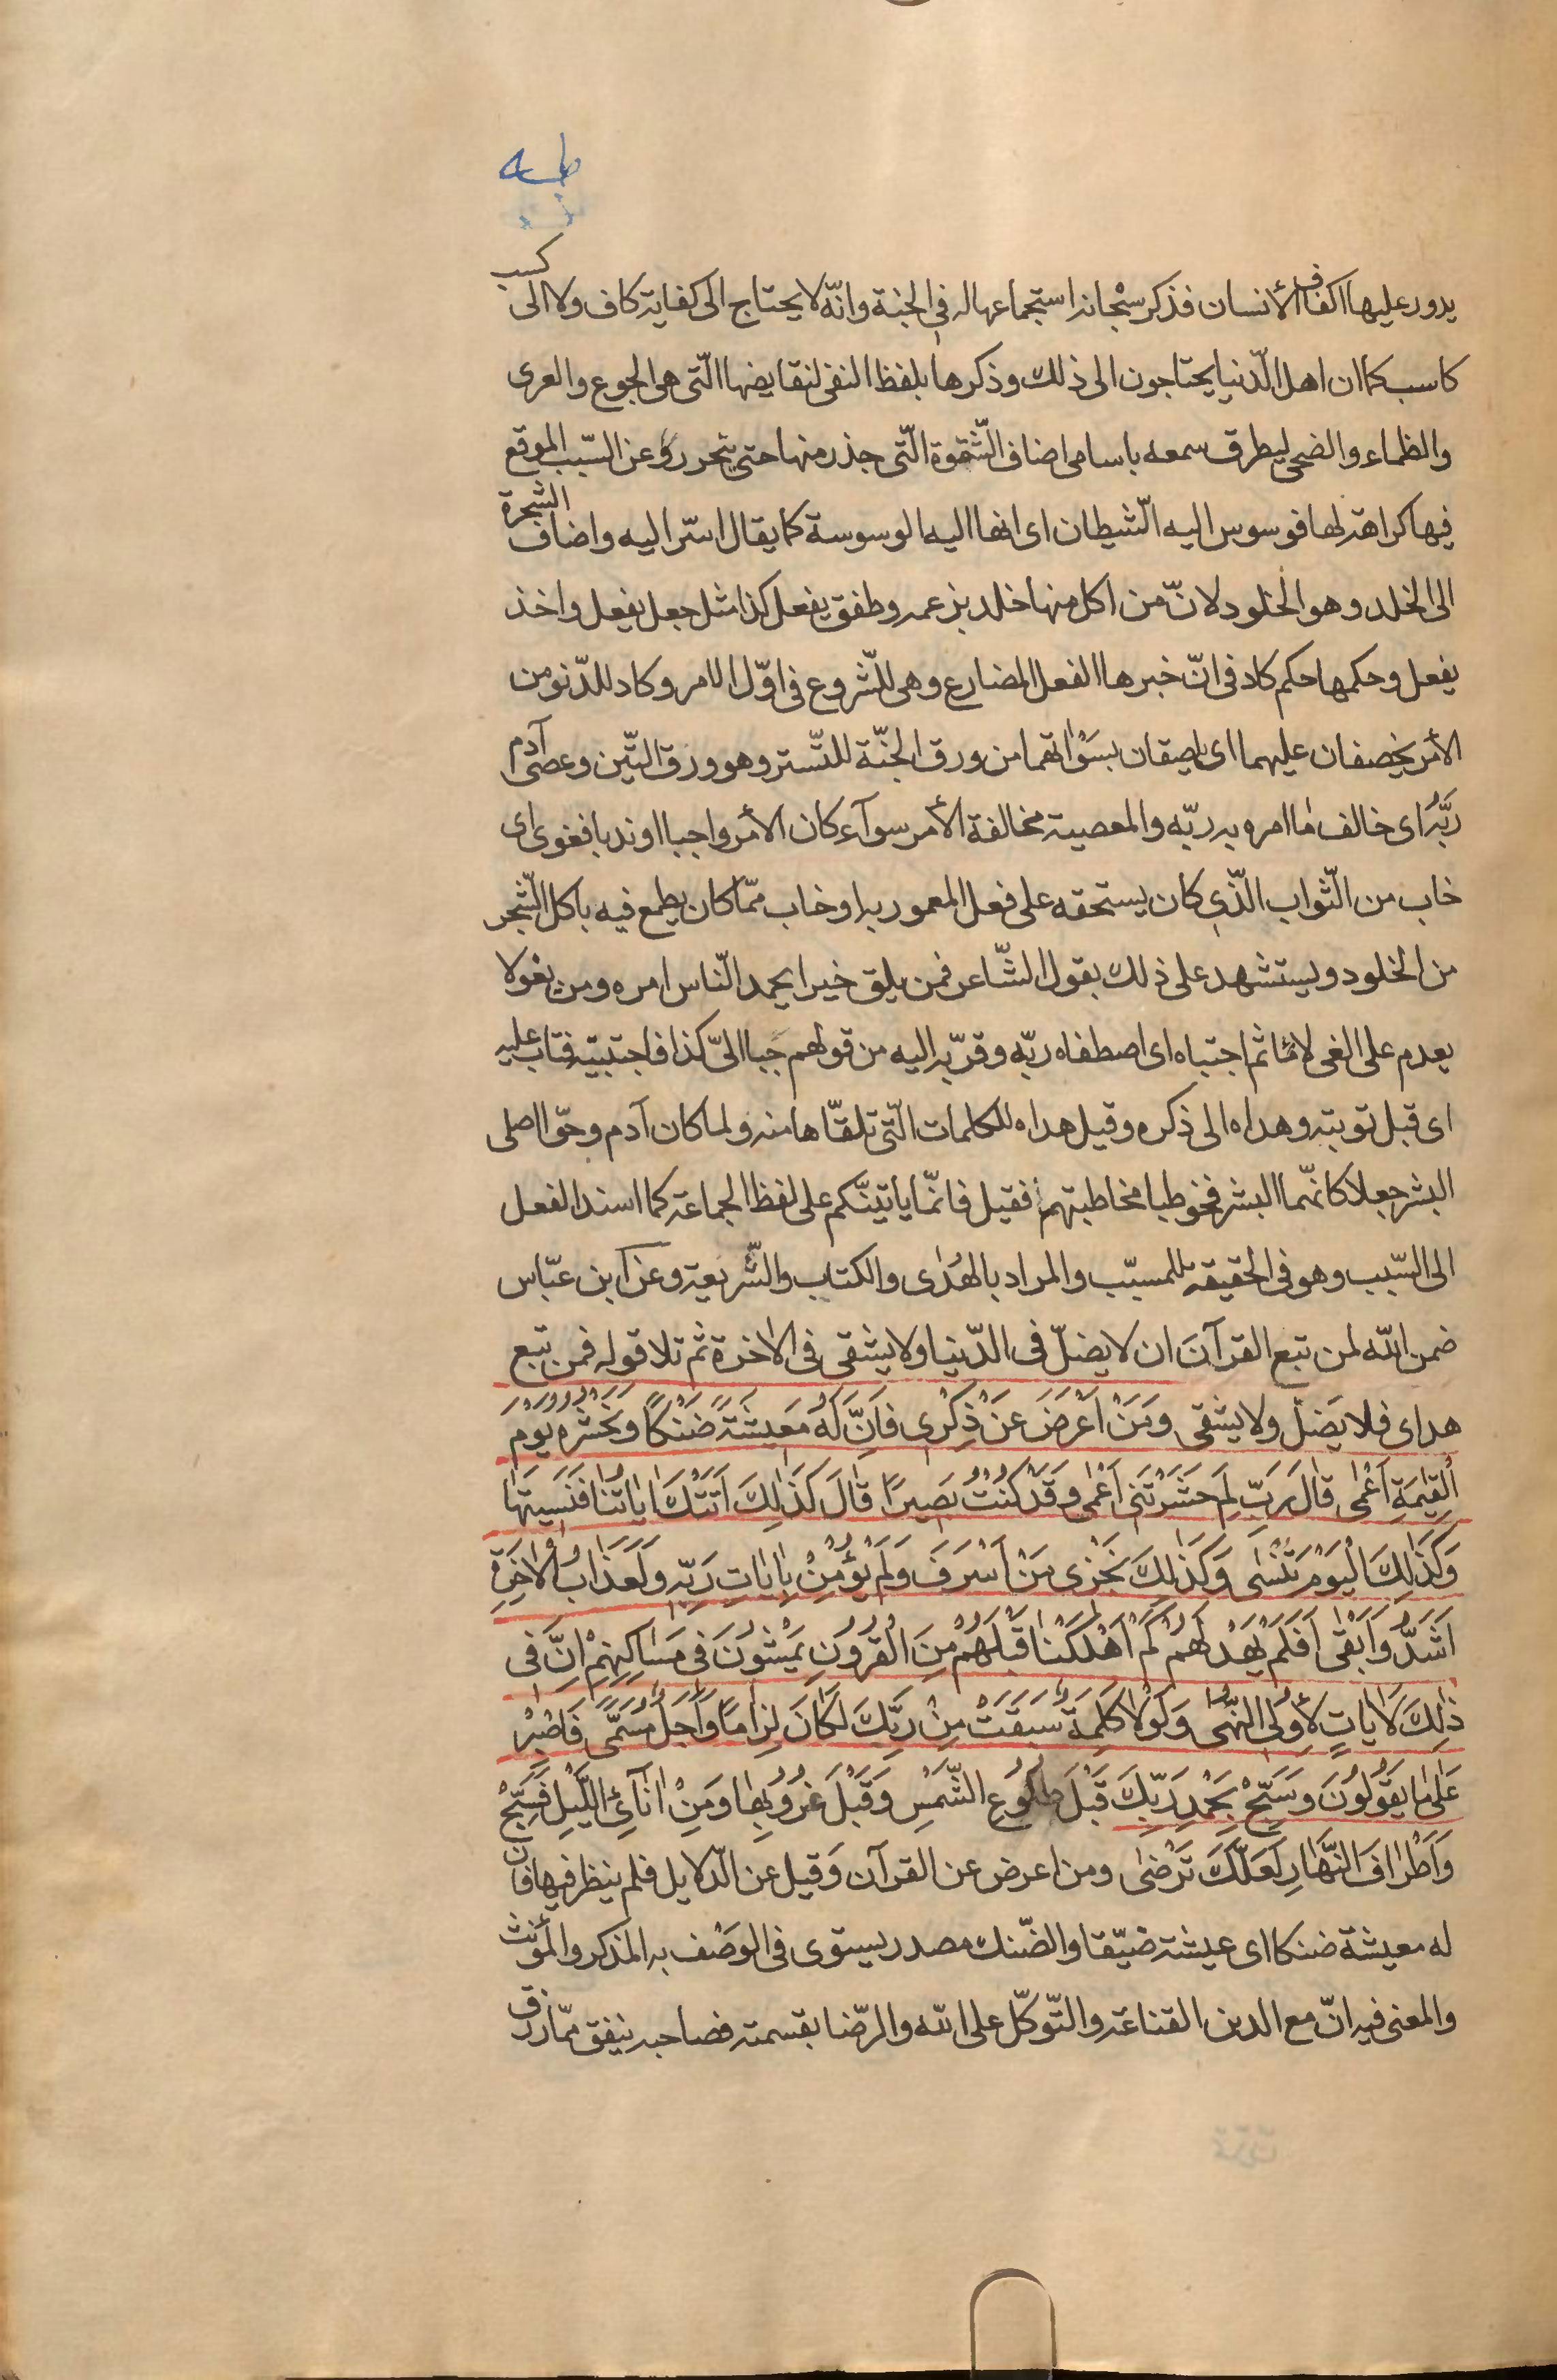 طه
يدور عليها اكفاف الأنسان فذكر سبحانه استجماعها له فى الجنة وانّه لا يحتاج الى كفاية كاف ولا الى كسب
كاسب كما ان اهل الدّنيا يحتاجون الى ذلك وذكرها بلفظ النفى لنقايضها الّتى هى الجوع والعرى
والظماء والضحى ليطرق سمعه باسامى اضاف الشّقوة الّتى حذر منها حتى يتحرر عن السّبب الموقع
فيها كراهة لها فوسوس اليه الشّيطان اى انها اليه الوسوسة كما يقال اسّر اليه واضاف الشجرة
الى الخلد وهو الخلود لانّ من اكل منها خلد بزعمه وطفق يفعل كذا مثل جعل يفعل واخذ
يفعل وحكمها حكم كاد فى انّ خبرها الفعل المضارع وهى للّشروع فى اوّل الامر وكاد للدّنو من
الأمر يخصفان عليهما اى يلصقان بسَوْاتهما من ورق الجنّة للتّستر وهو ورق التّين وعصى آدم
ربَّه اى خالف ما امره به ربّه والمعصية مخالفة الأمر سوآء كان الأمر واجبا او ندبا فغوى اى
خاب من الثّواب الّذى كان يستحقه على فعل المعمور به او خاب ممّا كان يطمع فيه باكل الشّجر
من الخلود ويستشهد على ذلك بقول الشّاعر فمن يلق خيرا يحمد النّاس امره ومن يغو لا
يعدم على الغى لائما ثم اجتباه اى اصطفاه ربّه وقرّبه اليه من قولهم جبا الىّ كذا فاجتبيته فتاب عليه
اى قبل توبته وهداه الى ذكره وقيل هداه للكلمات الّتى تلقّاها منه ولما كان آدم وحوّا اصلى
البشر جعلا كانّهما البشر فخوطبا مخاطبتهم فقيل فامّا ياتينّكم على لفظ الجماعة كما اسند الفعل
الى السّبب وهو فى الحقيقة للمسبّب والمراد بالهُدٰى والكتاب والشّريعة وعن ابن عبّاس
ضمن الله لمن تبع القرآن ان لا يضلّ فى الدّنيا ولا يشقى فى الاخرة ثم تلا قوله فمن تبع
هداى فلا يَضلّ ولا يشقى وَمَنْ اَعْرَضَ عَنْ ذِكْرِى فَاِنَّ لَهُ مَعيشَةً ضَنْكًا وَنَحْشُرُهُ يَوْمَ
اْلقِيٰمَةِ اَعْمٰى قٰالَ رَبِّ لِمَ حَشَرْتَنى اَعْمٰى وَقَدْ كُنْتُ بَصيرًا قٰالَ كَذٰلِكَ اَتَتْكَ اٰيٰاتُنٰا فَنَسيتَهٰا
وَكَذٰلِكَ اْليَوْمَ تُنْسٰى وَكَذٰلِكَ نَجْزى مَنْ اَسْرَفَ وَلَمْ يُؤْمِنْ بِاٰيٰاتِ رَبِّهِ وَلَعَذٰابُ اْلاٰخِرَةِ
اَشَدُّ وَاَبْقٰى اَفَلَمْ يَهْدِ لَهُمْ كَمْ اَهْلَكْنٰا قَبْلَهُمْ مِنَ اْلقُرُونِ يَمْشُونَ فى مَسٰاكِنِهِمْ اِنَّ فى
ذٰلِكَ لَاٰيٰاتٍ لِاُولِى النُّهٰى وَلَوْلٰا كَلِمَةٌ سَبَقَتْ مِنْ رَبِّكَ لَكٰانَ لِزٰامًا وَاَجَلٌ مُسَمًّى فَاصْبِرْ
عَلٰى مٰا يَقُولُونَ وَسَبِّحْ بِحَمْدِ رَبِّكَ قَبْلَ طُلُوعِ الشَّمْسِ وَقَبْلَ غُرُوبِهٰا وَمِنْ اٰنآئِ اللَّيْلِ فَسَبِّحْ
وَاَطْرٰافَ النَّهٰارِ لَعَلَّكَ تَرْضٰى ومن اعرض عن القرآن وقيل عن الدّلايل فلم ينظر فيها فان
له معيشة ضنكا اى عيشة ضيّقا والضّنك مصدر يستوى فى الوصْف به المذكر والمؤنث
والمعنى فيه انّ مع الدين القناعة والتّوكّل على الله والرّضا بقسمته فصاحبه ينفق ممّا رزق